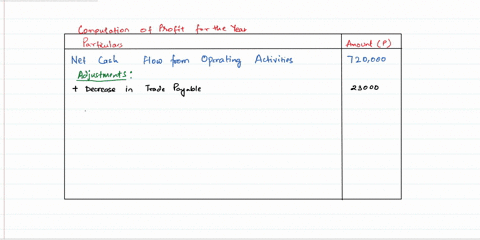 Computation of Profit for the Year
Particulars Amount (P)
Net Cash Flow from Operating Activities 720,000
Adjustments:
+ Decrease in Trade Payable 23000